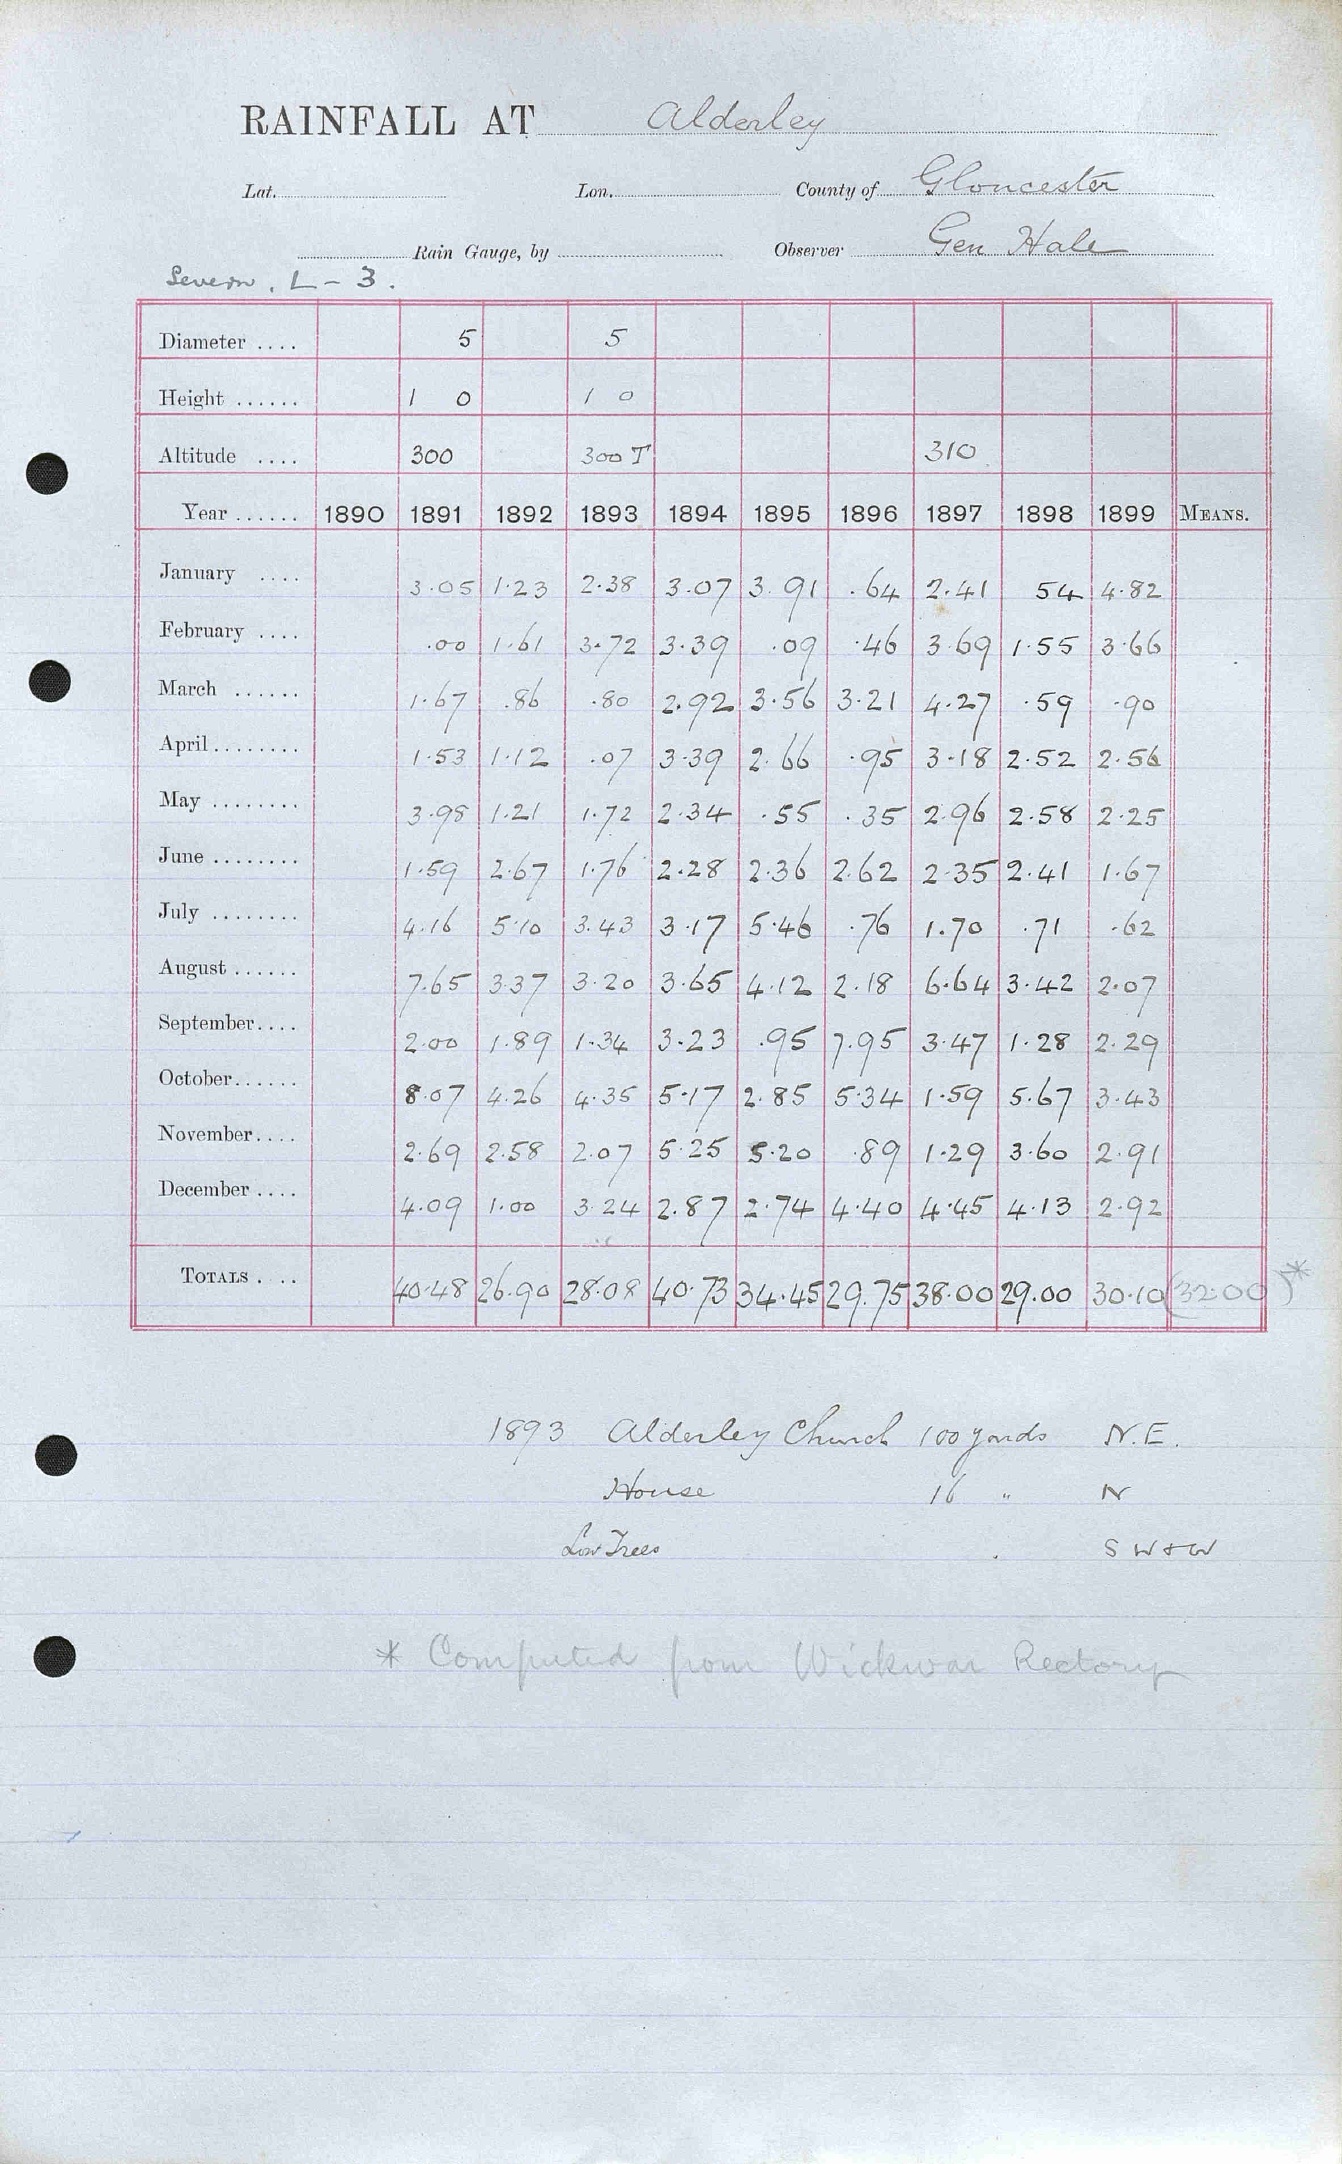 RAINFALL AT Alderley
Lat. Lon. County of Gloucester
Rain Gauge, by Observer Gen Hale
Severn. L - 3.
Diameter .... 5 5
Height ...... 1 0 1 0
Altitude .... 300 300 T 310
Year ...... 1890 1891 1892 1893 1894 1895 1896 1897 1898 1899 MEANS.
January .... 3.05 1.23 2.38 3.07 3.91 .64 2.41 54 4.82
February .... .00 1.61 3.72 3.39 .09 .46 3.69 1.55 3.66
March ...... 1.67 .86 .80 2.92 3.56 3.21 4.27 .59 .90
April ........ 1.53 1.12 .07 3.39 2.66 .95 3.18 2.52 2.56
May ........ 3.98 1.21 1.72 2.34 .55 .35 2.96 2.58 2.25
June ........ 1.59 2.67 1.76 2.28 2.36 2.62 2.35 2.41 1.67
July ........ 4.16 5.10 3.43 3.17 5.46 .76 1.70 .71 .62
August ...... 7.65 3.37 3.20 3.65 4.12 2.18 6.64 3.42 2.07
September.... 2.00 1.89 1.34 3.23 .95 7.95 3.47 1.28 2.29
October...... 8.07 4.26 4.35 5.17 2.85 5.34 1.59 5.67 3.43
November.... 2.69 2.58 2.07 5.25 5.20 .89 1.29 3.60 2.91
December .... 4.09 1.00 3.24 2.87 2.74 4.40 4.45 4.13 2.92
TOTALS .... 40.48 26.90 28.08 40.73 34.45 29.75 38.00 29.00 30.10 (32.00)*
1893 Alderley Church 100 yards N.E.
House 16 " N
Low Trees S W & W
* Computed from Wickwar Rectory